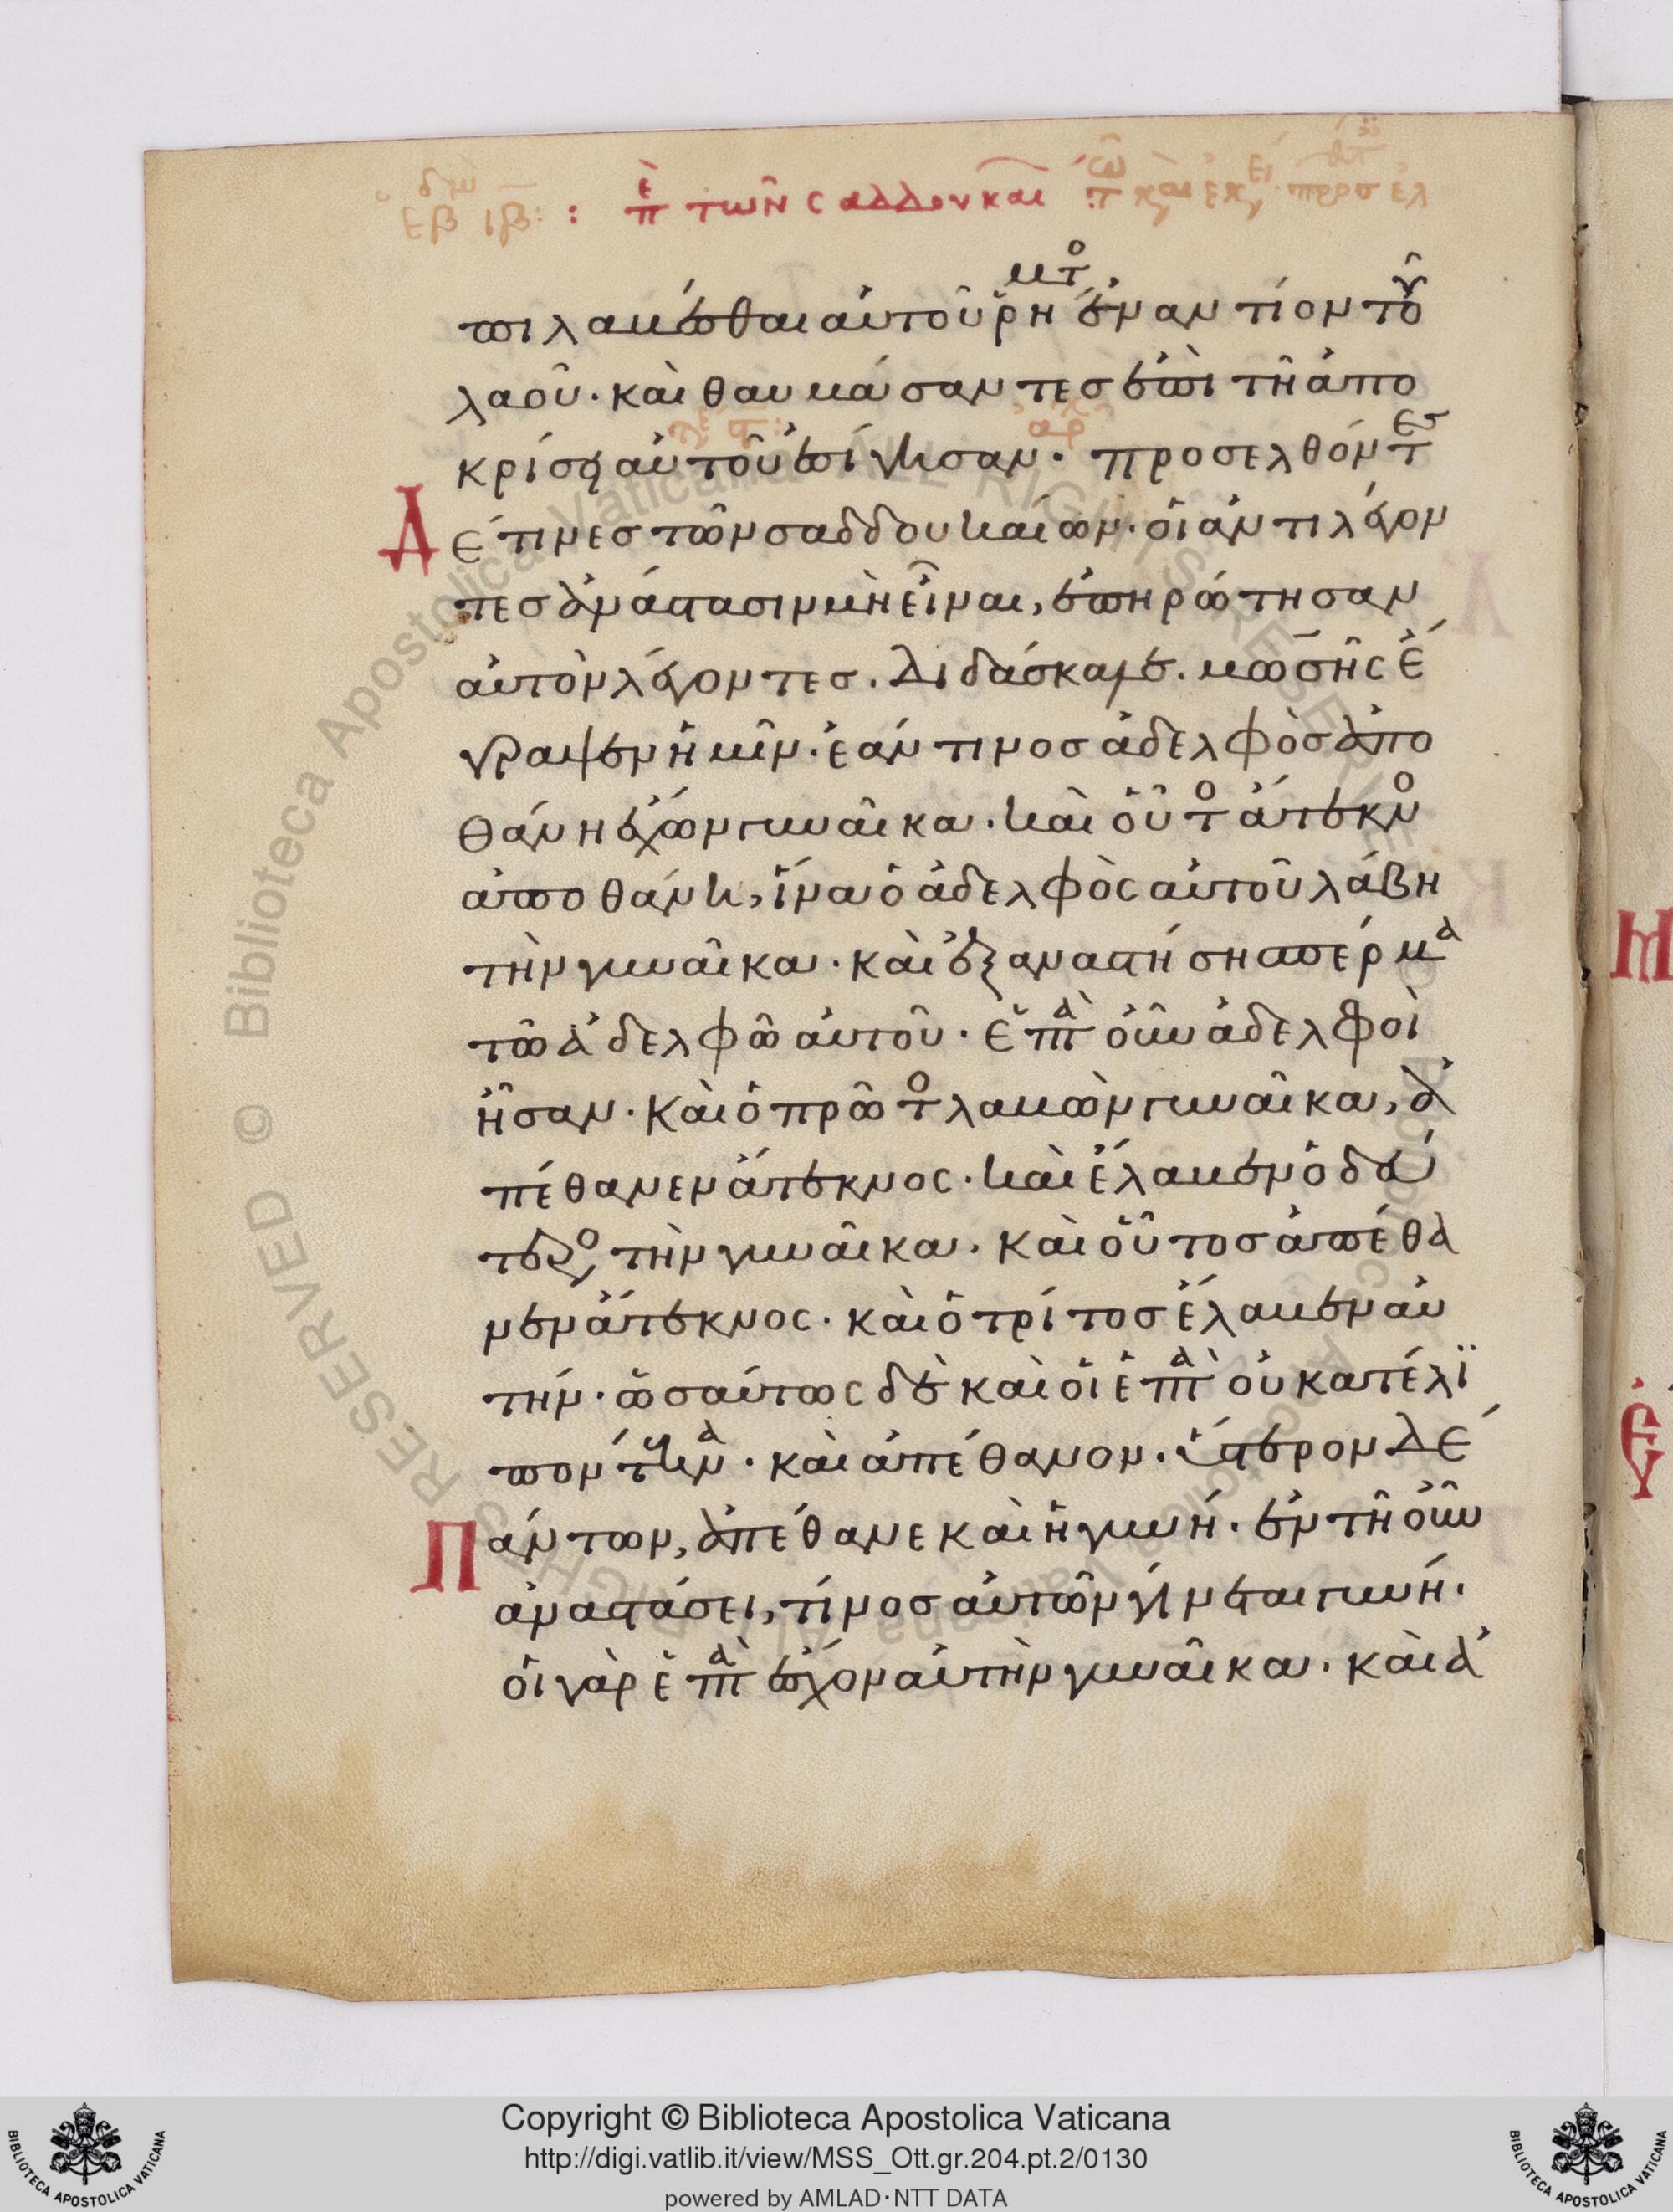 πε τῶν σαδδουκαι
πιλαβέσθαι αὐτοῦ ῥήματος ἐναντίον τοῦ
λαοῦ· καὶ θαυμάσαντες ἐπὶ τῆ ἀπο
κρίσει αὐτοῦ ἐσίγησαν· προσελθόντες
Δέ τινες τῶν σαδδουκαίων· οἱ ἀντιλέγον
τες ἀνάστασιν μὴ εἶναι, ἐπηρώτησαν
αὐτὸν λέγοντες. Διδάσκαλε. μωσῆς ἔ
γραψεν ἡμῖν· ἐάν τινος ἀδελφὸς ἀπο
θάνη ἔχων γυναῖκα· καὶ οὗτος ἄτεκνος
ἀποθάνη, ἵνα ὁ ἀδελφὸς αὐτοῦ λάβη
τὴν γυναῖκα· καὶ ἐξαναστήση σπέρμα
τῶ ἀδελφῶ αὐτοῦ· ἑπτὰ οὖν ἀδελφοὶ
ἦσαν· καὶ ὁ πρῶτος λαβὼν γυναῖκα, ἀ
πέθανεν ἄτεκνος· καὶ ἔλαβεν ὁ δεύ
τερος τὴν γυναῖκα· καὶ οὗτος ἀπέθα
νεν ἄτεκνος· καὶ ὁ τρίτος ἔλαβεν αὐ
τήν· ὡσαύτως δὲ καὶ οἱ ἑπτὰ οὐ κατέλι
πον τέκνα· καὶ ἀπέθανον· ὕστερον δέ
Πάντων, ἀπέθανε καὶ ἡ γυνή· ἐν τῆ οὖν
ἀναστάσει, τίνος αὐτῶν γίνεται γυνή·
οἱ γὰρ ἑπτὰ ἔσχον αὐτὴν γυναῖκα· καὶ ἀ
Copyright © Biblioteca Apostolica Vaticana
http://digi.vatlib.it/view/MSS_Ott.gr.204.pt.2/0130
powered by AMLAD·NTT DATA
BIBLIOTECA APOSTOLICA VATICANA
BIBLIOTECA APOSTOLICA VATICANA